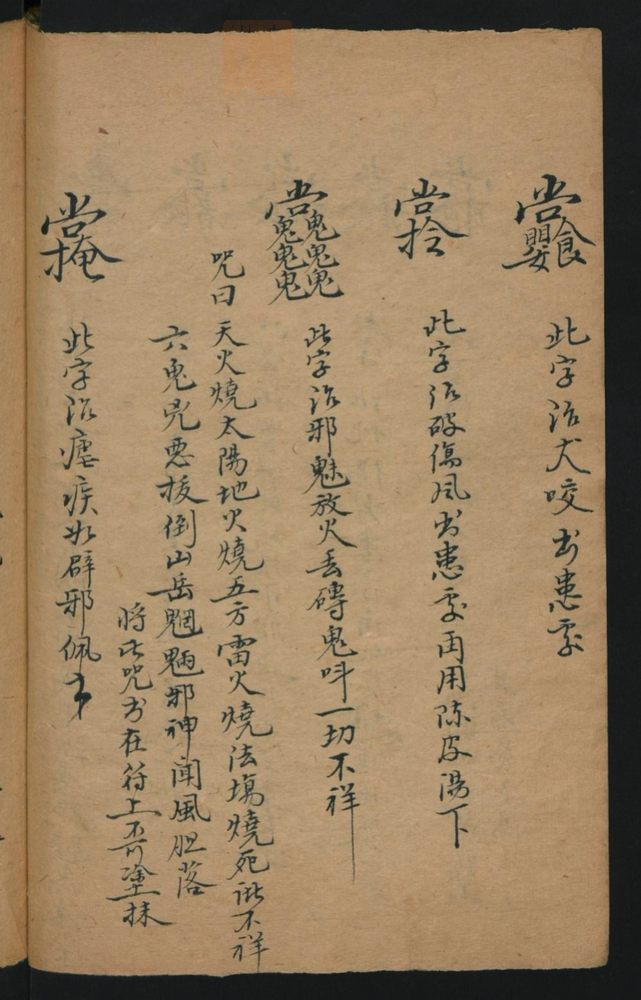 此字治犬咬书患处
此字治破伤风书患处再用陈皮汤下
此字治邪魅放火丢磚鬼呌一切不祥
咒曰 天火燒太陽地火燒五方雷火燒法塲燒死诸不祥
六鬼兇惡拔倒山岳魍魎邪神闻風胆落
將此咒书在符上不可塗抹
此字治瘧疾如辟邪佩